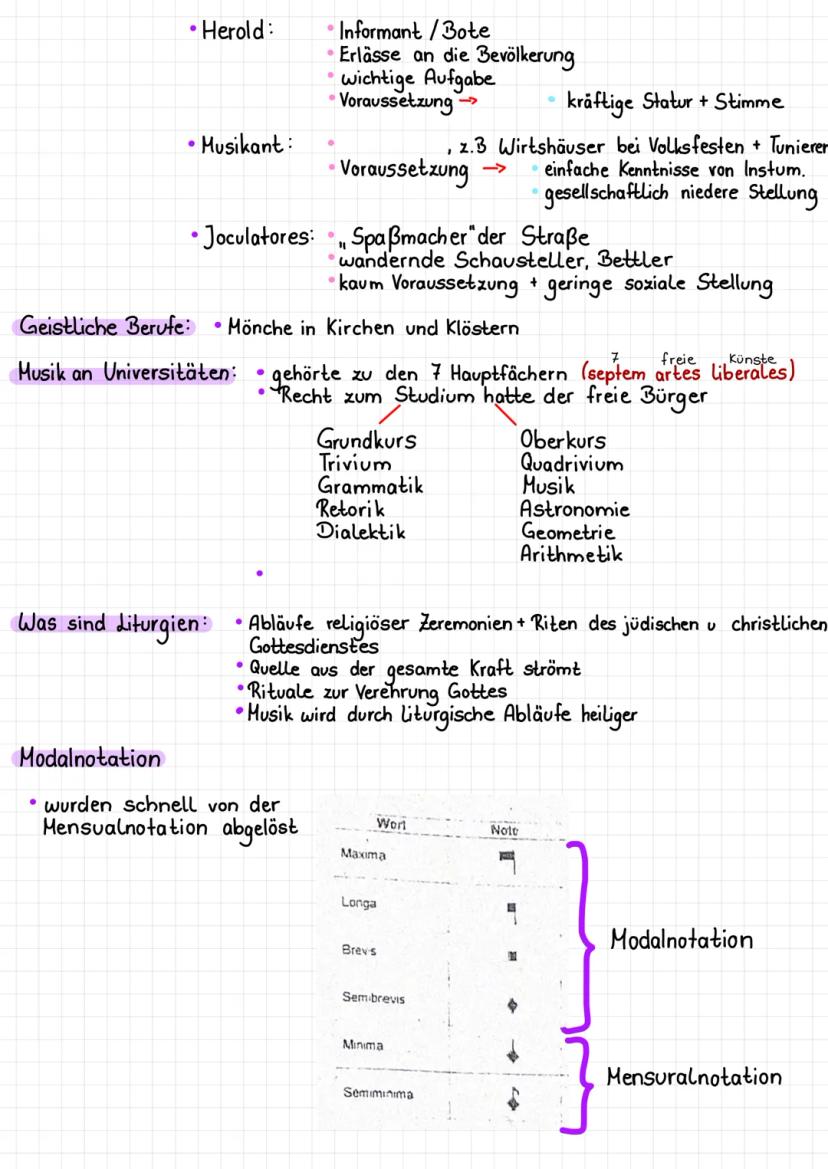 Herold: • Informant / Bote
• Erlässe an die Bevölkerung
• wichtige Aufgabe
• Voraussetzung → • kräftige Statur + Stimme
• Musikant: • , z.B Wirtshäuser bei Volksfesten + Tunieren
• Voraussetzung → • einfache Kenntnisse von Instum.
• gesellschaftlich niedere Stellung
• Joculatores: • „Spaßmacher" der Straße
• wandernde Schausteller, Bettler
• kaum Voraussetzung + geringe soziale Stellung
Geistliche Berufe: • Mönche in Kirchen und Klöstern
7 freie Künste
Musik an Universitäten: • gehörte zu den 7 Hauptfächern (septem artes liberales)
• Recht zum Studium hatte der freie Bürger
Grundkurs Oberkurs
Trivium Quadrivium
Grammatik Musik
Retorik Astronomie
Dialektik Geometrie
Arithmetik
Was sind Liturgien: • Abläufe religiöser Zeremonien + Riten des jüdischen u christlichen
Gottesdienstes
• Quelle aus der gesamte Kraft strömt
• Rituale zur Verehrung Gottes
• Musik wird durch liturgische Abläufe heiliger
Modalnotation
• wurden schnell von der
Mensualnotation abgelöst
Wert Note
Maxima
Longa
Brevis
Modalnotation
Semibrevis
Minima
Mensuralnotation
Semiminima